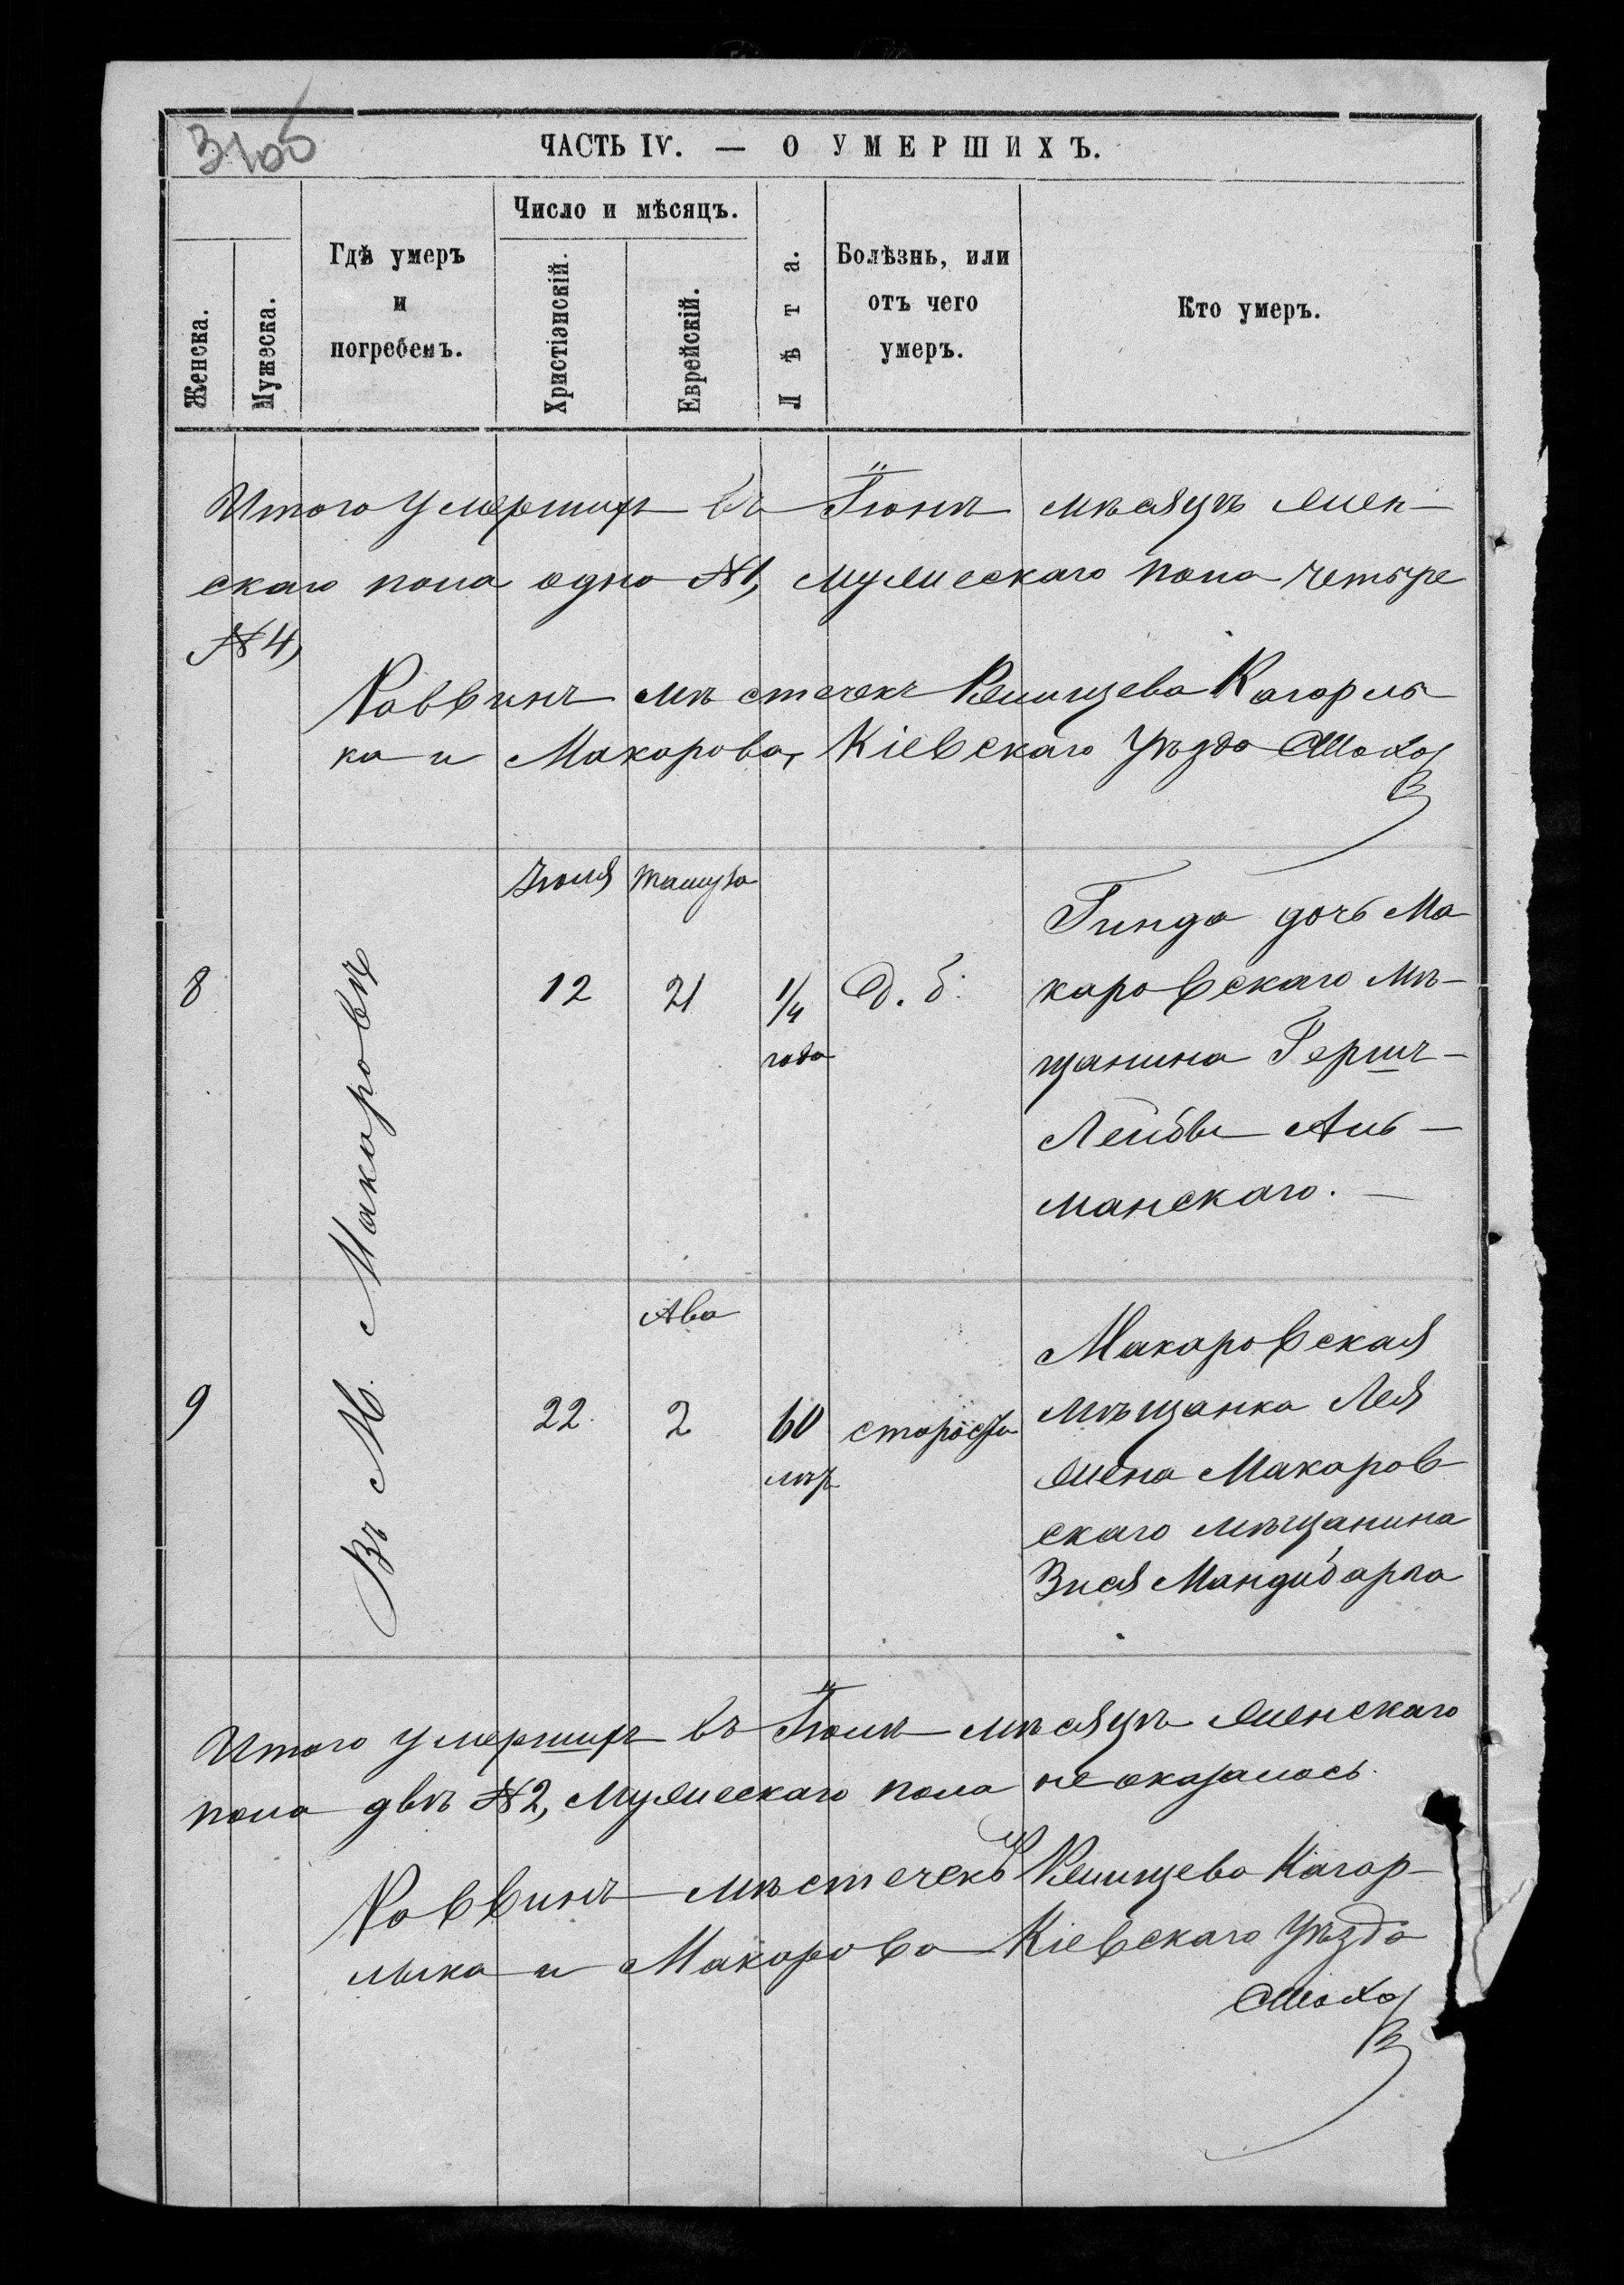 31об
ЧАСТЬ IV. — О УМЕРШИХЪ.
Женска.
Мужеска.
Гдѣ умеръ
и
погребенъ.
Число и мѣсяцъ.
Христіанскій.
Еврейскій.
Лѣта.
Болѣзнь, или
отъ чего
умеръ.
Кто умеръ.
Итого умершихъ въ Іюнѣ мѣсяцѣ жен-
скаго пола одно №1, мужескаго пола четыре
№4,
Раввинъ мѣстечекъ Ржищева Кагарлы-
ка и Макарова, Кіевскаго Уѣзда
Въ М. Макаровѣ
Іюля Тамуза
8 12 21 1/4 года Д. б.
Гинда дочь Ма-
каровскаго мѣ-
щанина Герш-
Лейбы Аль-
манскаго. —
Ава
9 22. 2 60 лѣтъ старость
Макаровская
мѣщанка Лея
жена Макаров-
скаго мѣщанина
Зися Мандибарга
Итого умершихъ въ Іюлѣ мѣсяцѣ женскаго
пола двѣ №2, мужескаго пола не оказалось.
Раввинъ мѣстечекъ Ржищева Кагар-
лыка и Макарова Кіевскаго Уѣзда